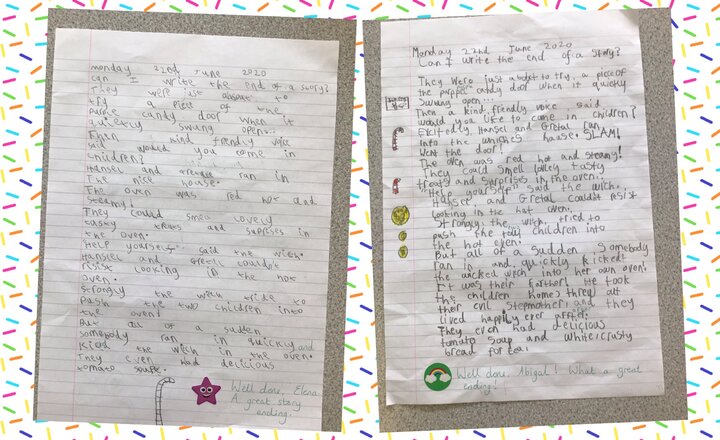 monday 22nd June 2020
can I write the end of a story?
They were just about to
try a piece of the
purple candy door when it
quietly swung open...
Then kind friendly voice
said would you come in
children?
Hansel and ran in
nice house.
The oven was red hot and
steamy!
They could smell lovely
tasty and in
the oven.
help yourself said the witch.
Hansel and couldnt
resist looking in the hot
oven.
Strongly the tride to
Push the two children into
the oven!
But all of a sudden
somebody ran in quickly and
the in the oven.
They even had delicious
tomato
Well done, Elena.
A great story
ending.
Monday 22nd June 2020
Can I write the end of a story?
They were just about to try, a piece of
the candy door when it
swung open...
Then a kind, friendly voice said
would you like to come in children?
Excitedly, Hansel and Gretal ran
into the house. SLAM!
Went the door!
The oven was red hot and steamy!
They could smell tasty
treats and surprises in the oven.
"Help yourself" said the wich.
and Gretal couldn't resist
looking in the hot oven.
Strongly, the wich, tried to
push the children into
the hot oven!
But all of a sudden somebody
ran in and quickly kicked
the wicked wich into her own oven!
It was their He took
the children home, at
evil stepmother and they
lived happily ever
They even had delicious
tomato soup and white crusty
bread for tea.
Well done, Abigal! What a great
ending!